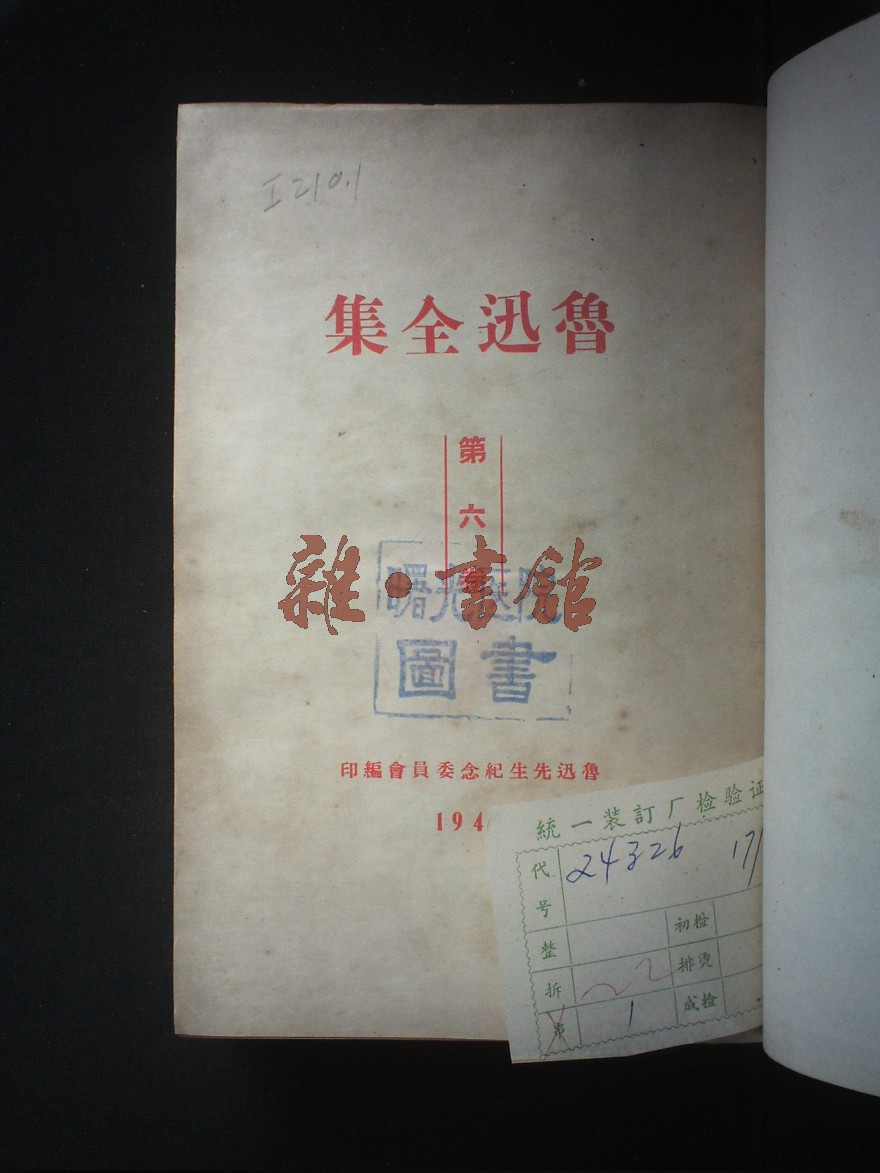 I210.1
魯迅全集
第六卷
雜·書館
曙光医院
圖書
魯迅先生紀念委員會編印
194
統一装訂厂检验证
代号 24326 171
整 初检
拆 排烫
1 成检